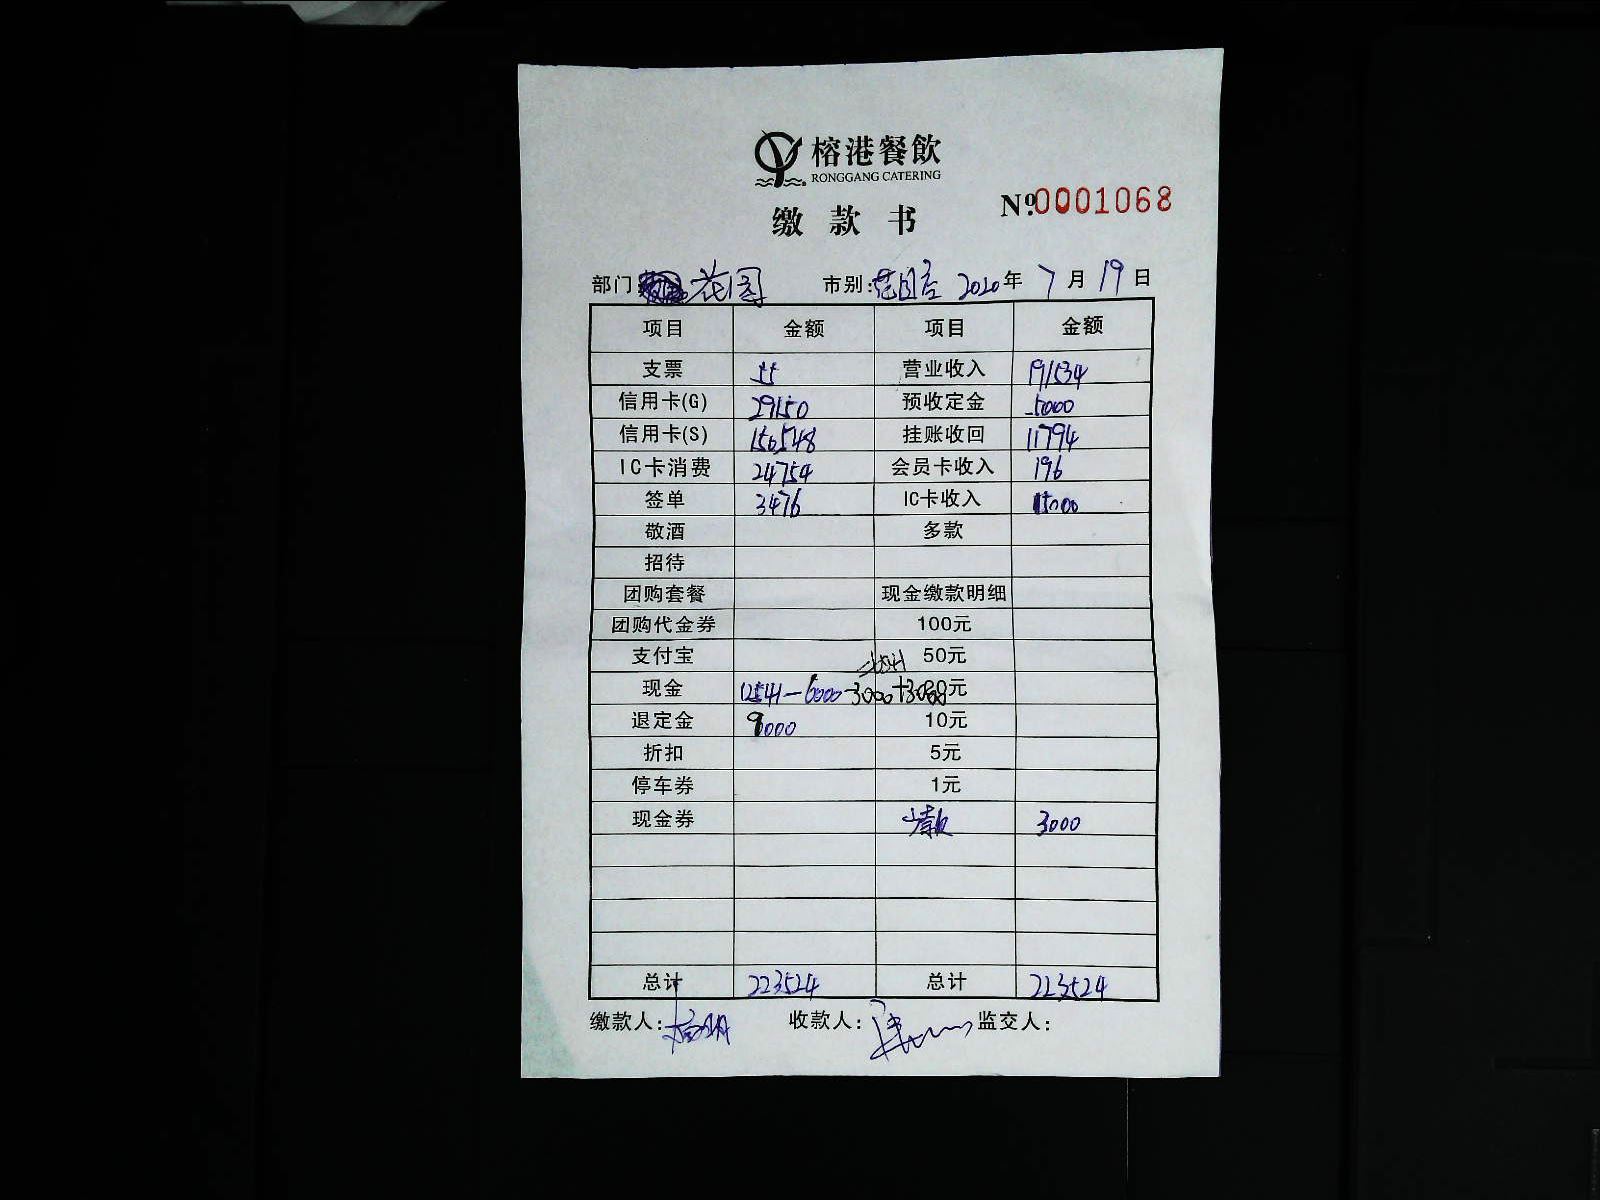 榕港餐飲
RONGGANG CATERING
缴款书
№0001068
部门 花园 市别: 2020年7月19日
项目 金额 项目 金额
支票 营业收入 191534
信用卡(G) 29150 预收定金 5000
信用卡(S) 150548 挂账收回 11794
IC卡消费 24754 会员卡收入 196
签单 3476 IC卡收入 15000
敬酒 多款
招待
团购套餐 现金缴款明细
团购代金券 100元
支付宝 50元
现金 12541-6000-3000+3000 元
退定金 9000 10元
折扣 5元
停车券 1元
现金券 3000
总计 223524 总计 223524
缴款人: 收款人: 监交人: